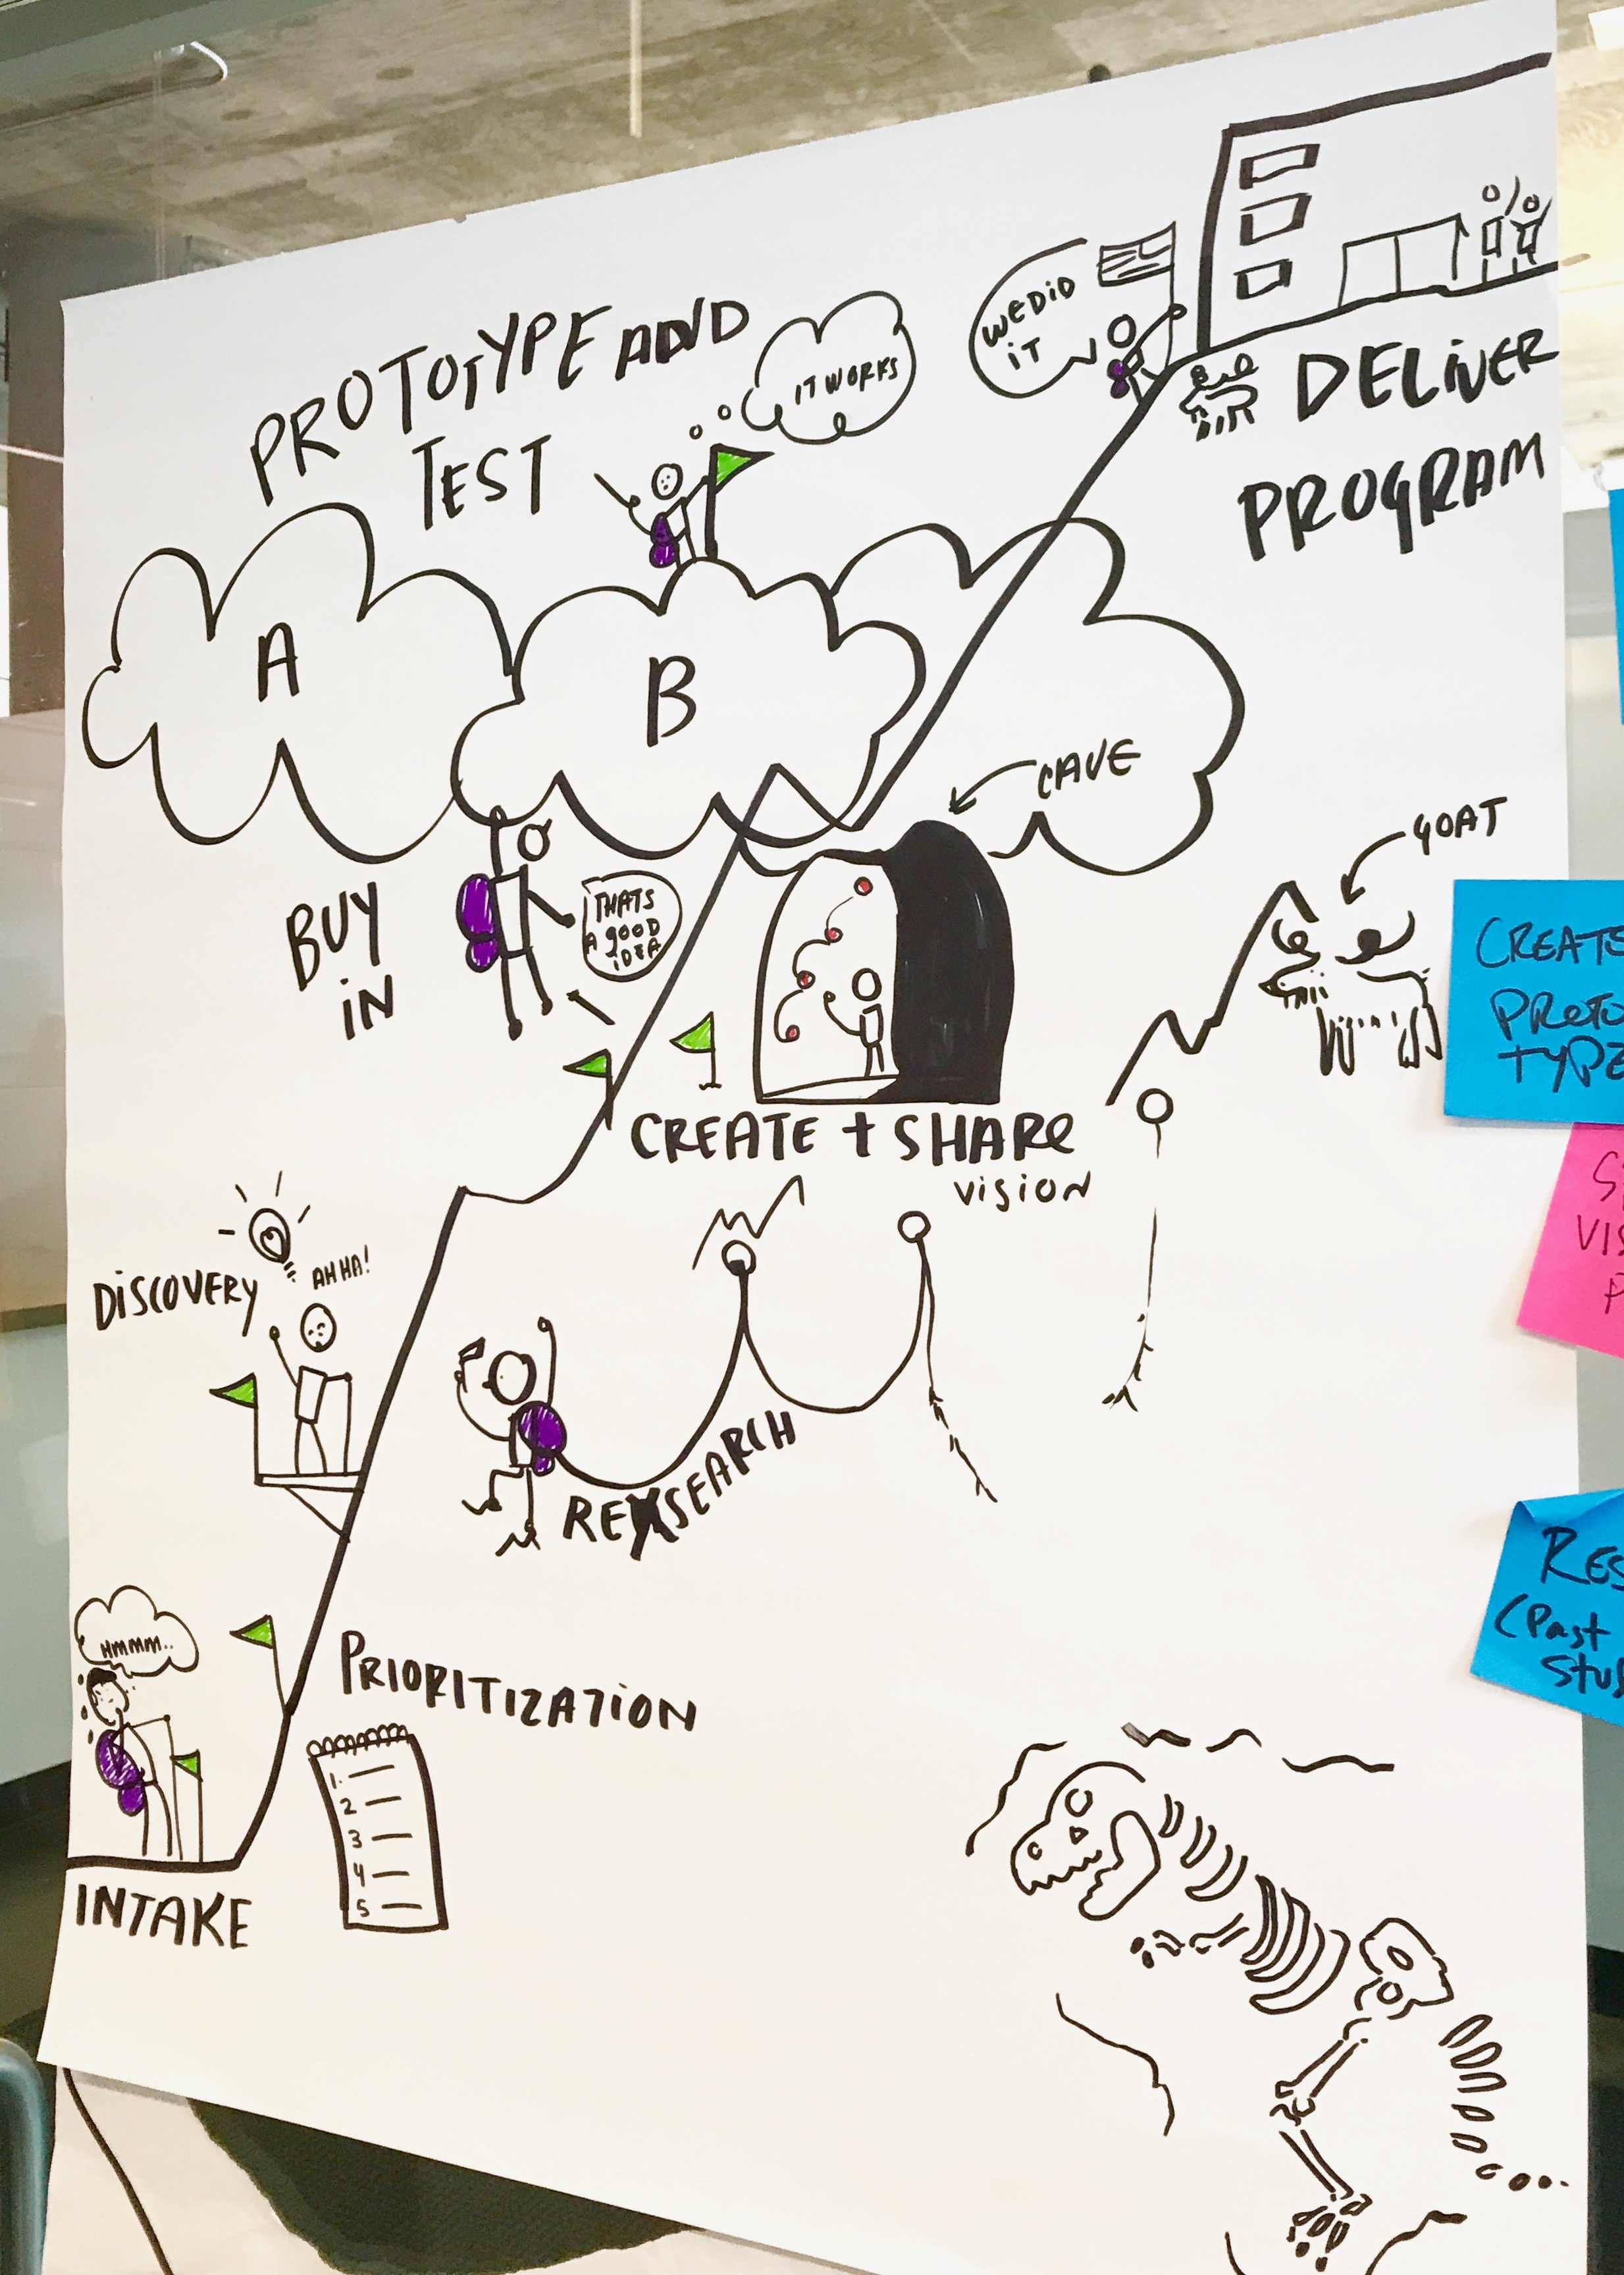 PROTOTYPE AND
TEST
IT WORKS
WE DID
IT
DELIVER
PROGRAM
A
B
CAVE
GOAT
BUY
IN
THATS
A GOOD
IDEA
CREATE + SHARE
VISION
DISCOVERY
AHHA!
RESEARCH
HMMM..
PRIORITIZATION
1.
2
3
4
5
INTAKE
CREATE
PROTO
TYPE
VIS
RES
(Past
STU